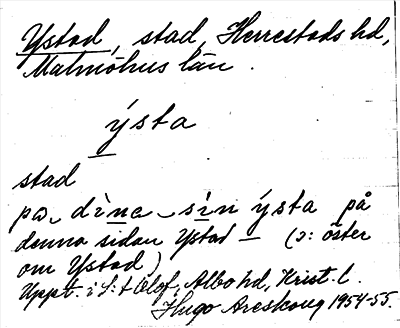 Ystad, stad, Herrestads hd,
Malmöhus län.
ýsta
stad
pa dina sin ýsta på
denna sidan Ystad — (ɔ: öster
om Ystad)
Uppt. i S:t Olof, Albo hd, Krist. l.
Hugo Areskoug 1954-55.